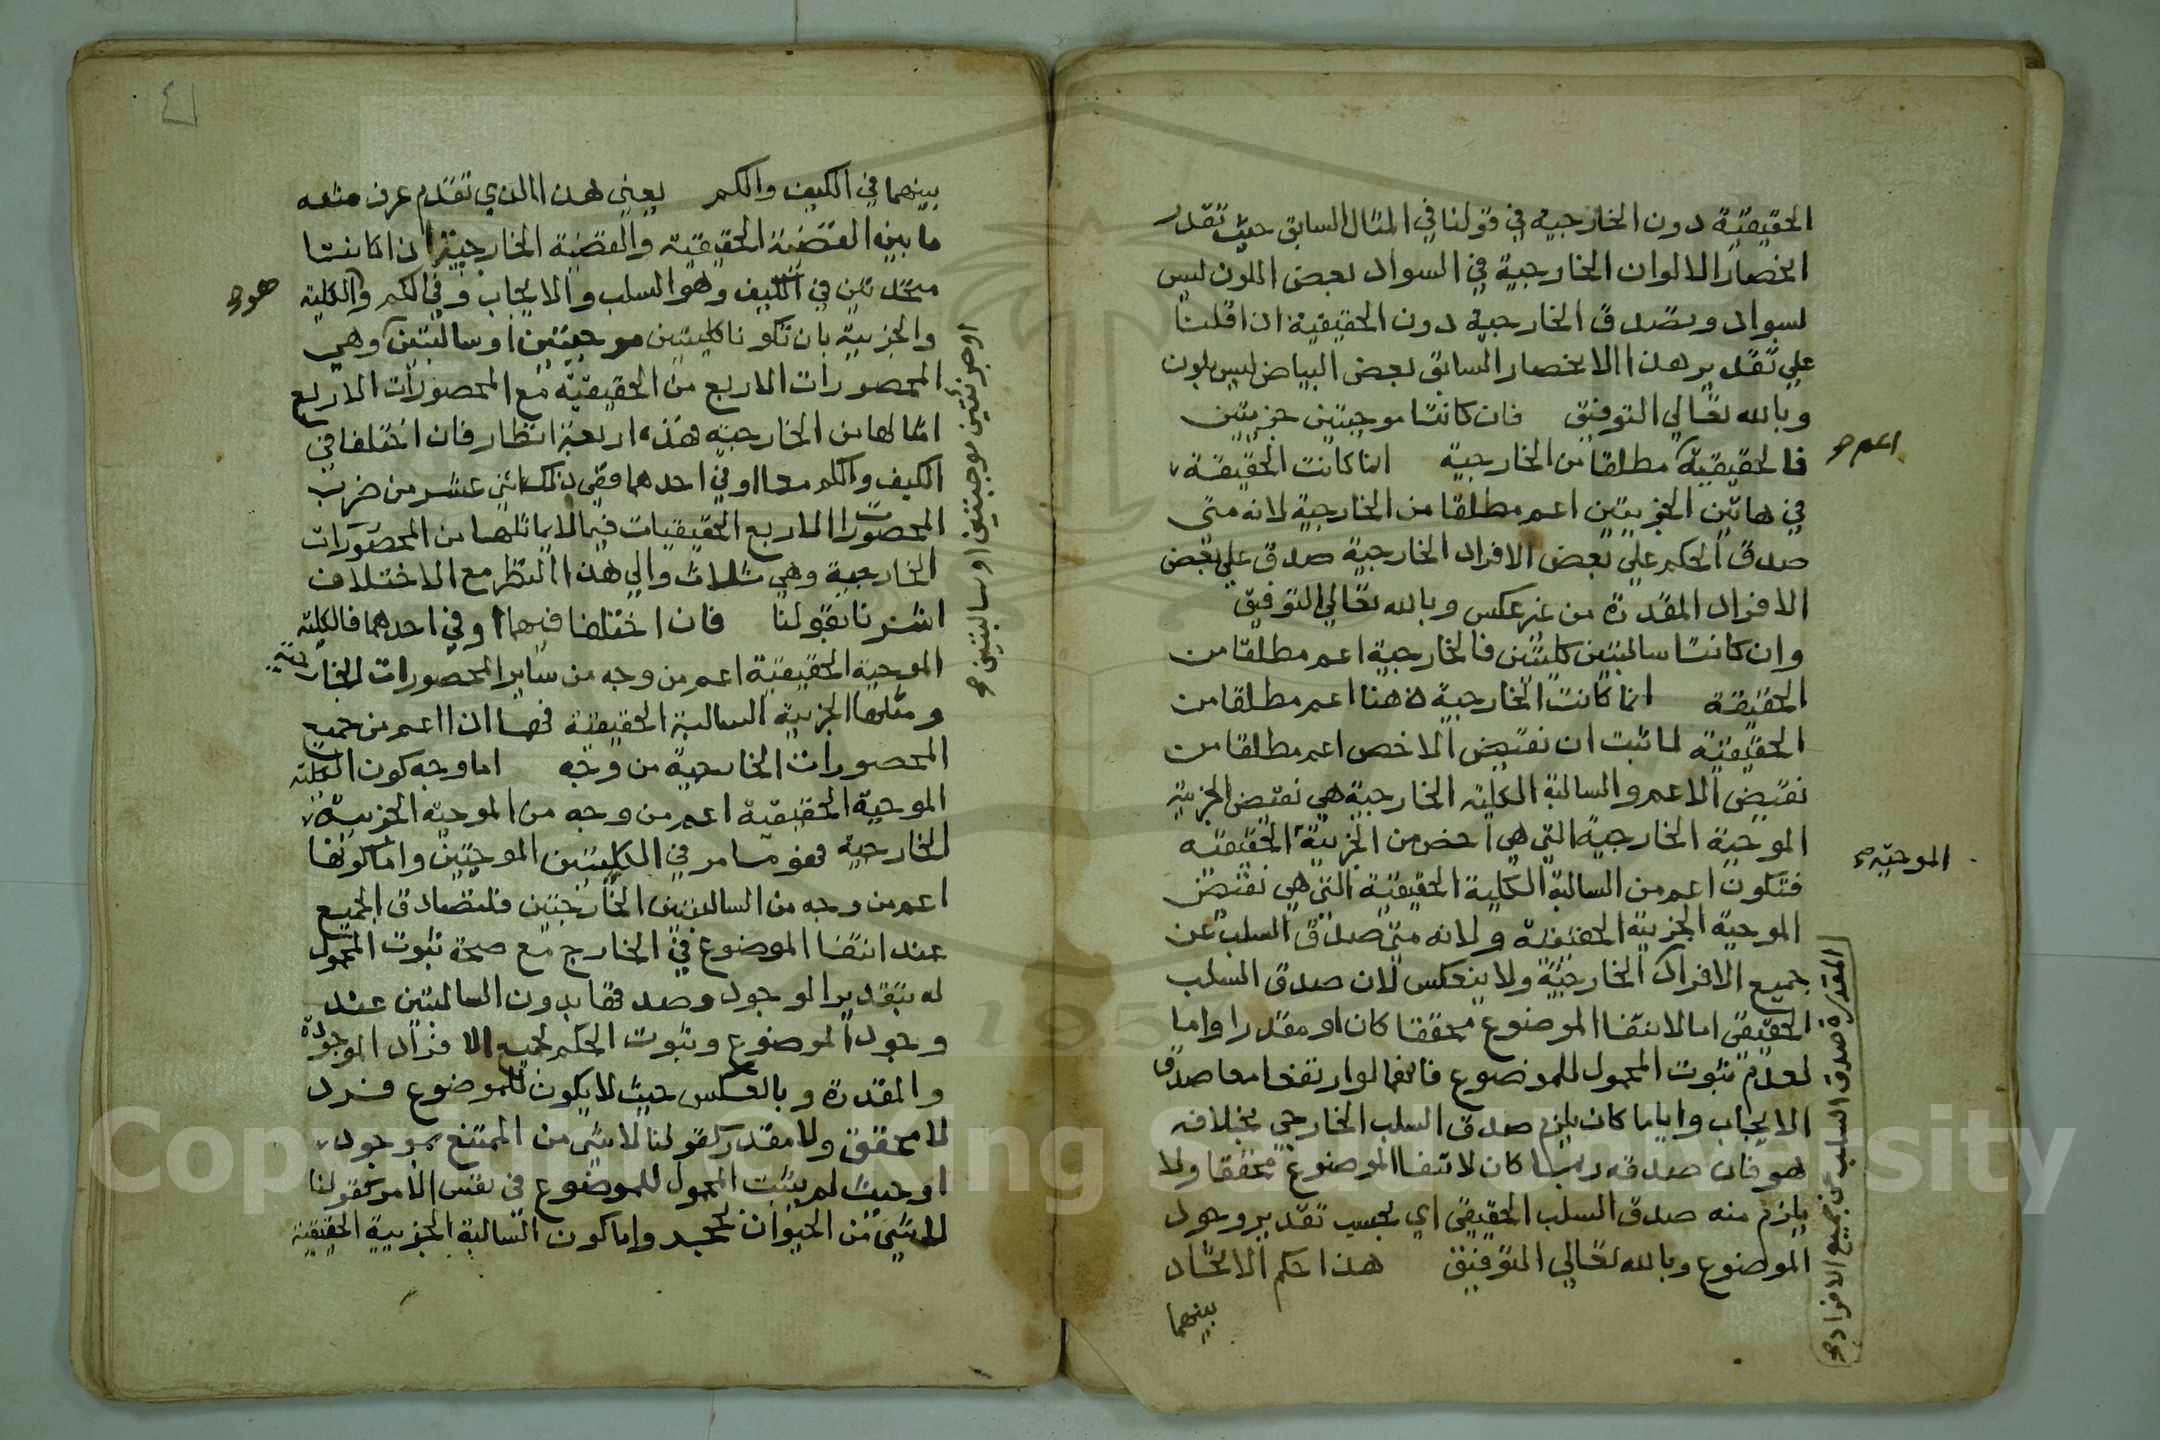 الحقيقية دون الخارجية في قولنا في المثال السابق حيث تقدر
انحصار الالوان الخارجية في السواد بعض الملون ليس
بسواد وتصدق الخارجية دون الحقيقية اذا قلنا
علي تقدير هذا الانحصار السابق بعض البياض ليس بلون
وبالله تعالي التوفيق فان كانتا موجبتين جزييتين
فالحقيقية مطلقا من الخارجية انما كانت الحقيقة
اعم صح
في هاتين الجزييتين اعم مطلقا من الخارجية لانه متي
صدق الحكم علي بعض الافراد الخارجية صدق علي بعض
الافراد المقدرة من غير عكس وبالله تعالي التوفيق
وان كانتا سالبتين كليتين فالخارجية اعم مطلقا من
الحقيقة انما كانت الخارجية هنا اعم مطلقا من
الحقيقية لما ثبت ان نقيض الاخص اعم مطلقا من
نقيض الاعم والسالبة الكلية الخارجية هي نقيض الجزيية
الموجبة الخارجية التي هي اخص من الجزيية الحقيقية
الموجبة صح
فتكون اعم من السالبة الكلية الحقيقية التي هي نقيض
الموجبة الجزيية الحقيقية ولانه متي صدق السلب عن
المقدرة صدق السلب عن جميع الافراد صح
جميع الافراد الخارجية ولا ينعكس لان صدق السلب
الحقيقي اما لانتفا الموضوع محققا كان او مقدرا واما
لعدم ثبوت المحمول للموضوع فانهما لو ارتفعا معا صدق
الايجاب وايا ما كان يلزم صدق السلب الخارجي بخلافه
هو فان صدقه ربما كان لانتفا الموضوع محققا ولا
يلزم منه صدق السلب الحقيقي اي بحسب تقدير وجود
الموضوع وبالله تعالي التوفيق هذا حكم الاتحاد
بينهما
٤١
بينهما في الكيف والكم يعني هذا الذي تقدم عرف منه
ما بين القضية الحقيقية والقضية الخارجية اذا كانتا
متحدتين في الكيف وهو السلب والايجاب وفي الكم والكلية
هو صح
والجزيية بان تكونا كليتين موجبتين او سالبتين وهي
او جزئيتين موجبتين او سالبتين صح
المحصورات الاربع من الحقيقية مع المحصورات الاربع
امثالها من الخارجية هذه اربعة انظار فان اختلفا في
الكيف والكم معا او في احدهما ففي ذلك اثني عشر من ضرب
المحصورات الاربع الحقيقيات فيما لا يماثلها من المحصورات
الخارجية وهي ثلاث والي هذا النظر مع الاختلاف
اشرنا بقولنا فان اختلفا فيهما او في احدهما فالكلية
الموجبة الحقيقية اعم من وجه من ساير المحصورات الخارجية
ومثلها الجزيية السالبة الحقيقية فهي اذا اعم من جميع
المحصورات الخارجية من وجه اما وجه كون الكلية
الموجبة الحقيقية اعم من وجه من الموجبة الجزيية
الخارجية فهو ما مر في الكليتين الموجبتين واما كونها
اعم من وجه من السالبتين الخارجيتين فلتصادق الجميع
عند انتفا الموضوع في الخارج مع صحة ثبوت المحمول
له بتقدير الوجود وصدقها بدون السالبتين عند
وجود الموضوع وثبوت الحكم لجميع الافراد الموجودة
والمقدرة وبالعكس حيث لا يكون للموضوع فرد
لا محقق ولا مقدر كقولنا لا شي من الممتنع بموجود
او حيث لم يثبت المحمول للموضوع في نفس الامر كقولنا
لا شي من الحيوان بحجر واما كون السالبة الجزيية الحقيقية
Copyright © King Saud University